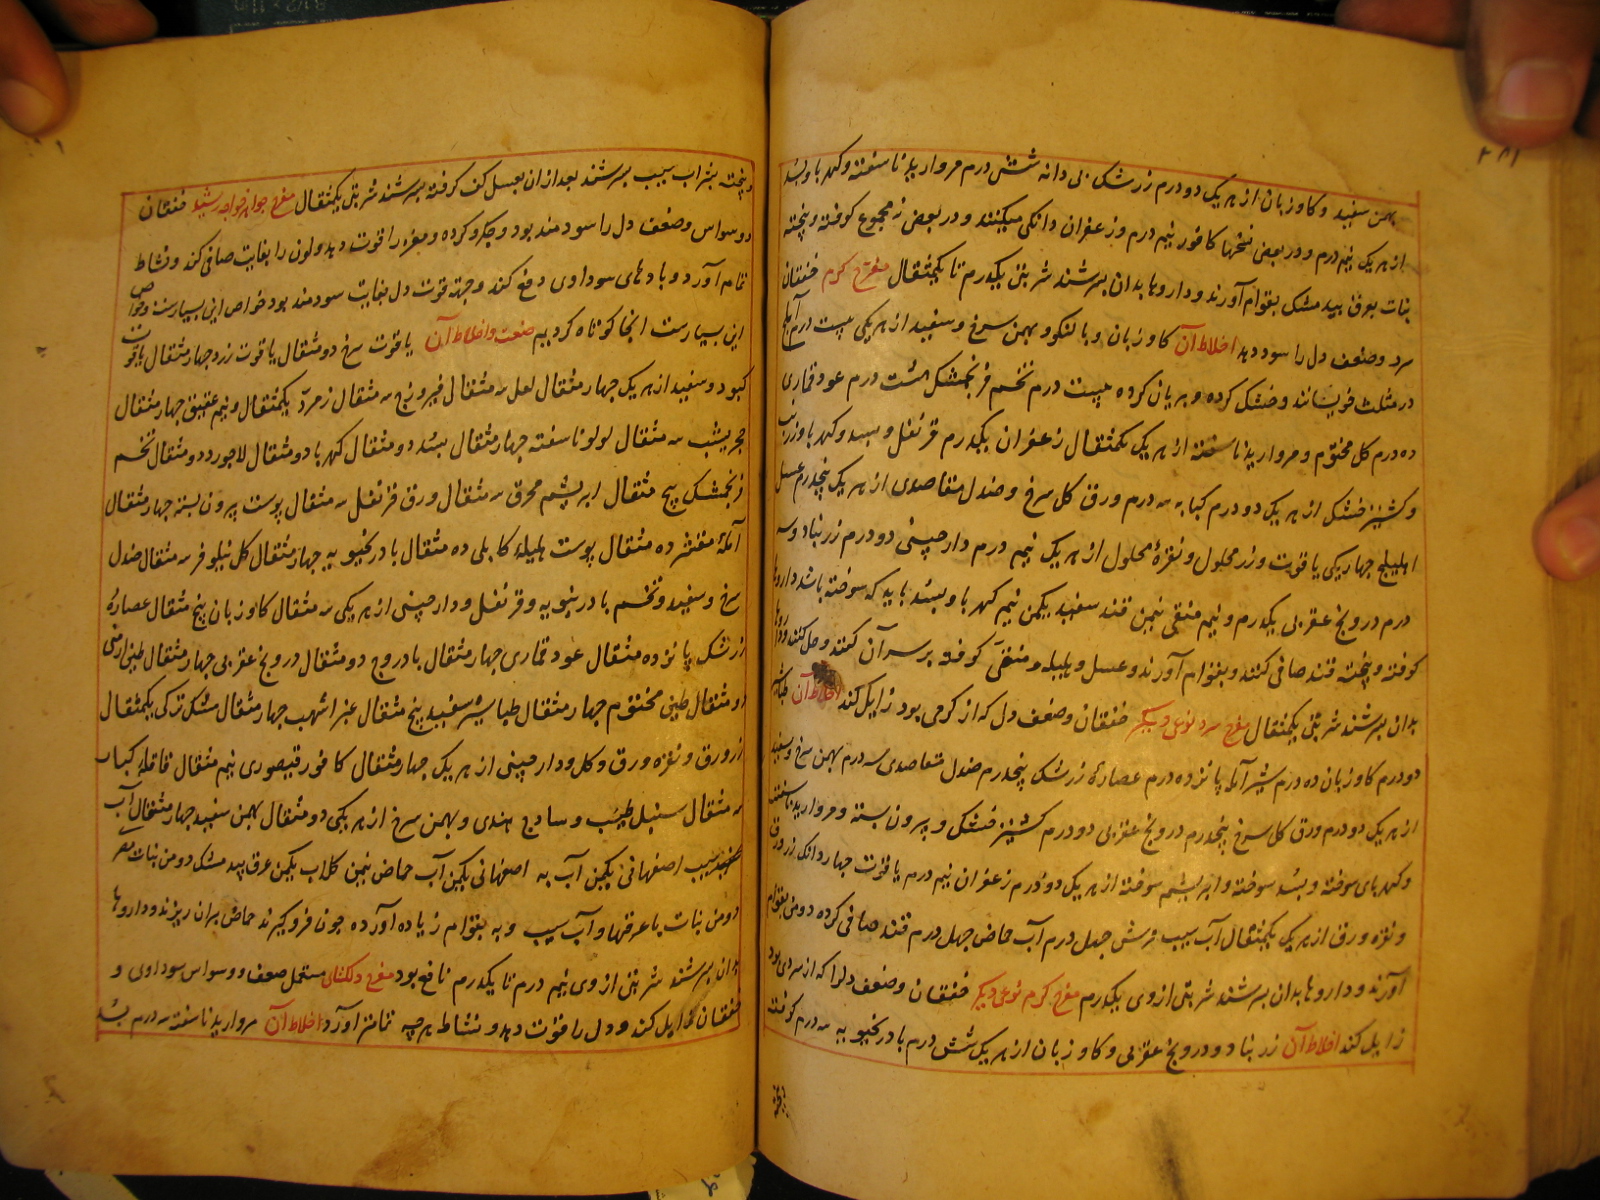 ۲۸۱
بهمن سفید و کاوزبان از هر یک دو درم زرشک بی دانه شش درم مروارید ناسفته و کهربا و بسد
از هر یک نیم درم و در بعضی نسخها کافور نیم درم و زعفران دانکی میکنند و در بعض نه مجموع کوفته و پخته
نبات بعرق بید مشک بقوام آورند و داروها بدان بسرشند شربتی یکدرم تا یکمثقال مفرح کرم خفقان
سرد و ضعف دل را سود دهد اخلاط آن کاوزبان و بالنکو و بهمن سرخ و سفید از هر یکی بیست درم آملج
در مثلث خویسانند و خشک کرده و بریان کرده بیست درم تخم فرنجمشک هشت درم عود قماری
ده درم کل مختوم و مروارید ناسفته از هر یک یکمثقال زعفران یکدرم قرنفل و بسد و کهربا و زرنب
و کشنیز خشک از هر یک دو درم کبابه سه درم ورق کل سرخ و صندل مقاصدی از هر یک پنجدرم عسل
اهلیلج چهار یکی یاقوت و زر محلول و نقرهٔ محلول از هر یک نیم درم دارچینی دو درم زرنباد و سه
درم درونج عقربی یکدرم و نیم منقی نیمن قند سفید یکمن نیم کهربا و بسد باید که سوخته باشد داروها
کوفته و پخته قند صافی کنند و بقوام آورند و عسل و هلیله و منقی کوفته بر سر آن کنند و حل کنند و داروها
بدان بسرشند شربتی یکمثقال مفرح سرد نوعی دیکر خفقان و ضعف دل که از کرمی بود زایل کند اخلاط آن طباشیر
دو درم کاوزبان ده درم شیر آمله پانزده درم عصارهٔ زرشک پنجدرم صندل مقاصدی سه درم بهمن سرخ و سفید
از هر یک دو درم ورق کل سرخ پنجدرم درونج عقربی دو درم کشنیز خشک و پیرون بسته و مروارید ناسفته
و کهربای سوخته و بسد سوخته و ابریشم سوخته از هر یک دو درم زعفران نیم درم یاقوت چهار دانک زر ورق
و نقره ورق از هر یک یکمثقال آب سیب ترش چهل درم آب حماض چهل درم قند صافی کرده دو من بقوام
آورند و داروها بدان بسرشند شربتی از وی یکدرم مفرح کرم نوعی دیکر خفقان و ضعف دلرا که از سردی بود
زایل کند اخلاط آن زرنباد و درونج عقربی و کاوزبان از هر یک شش درم بادرنجبویه سه درم کوفته
و پخته
و پخته بشراب سیب بسرشند بعد از ان بعسل کف کرفته بسرشند شربتی یکمثقال مفرح جواهر خواجه رشید خفقان
و وسواس و ضعف دل را سودمند بود و جکر و کرده و معده را قوت دهد و لون را بغایت صافی کند و نشاط
تمام آورد و بادهای سوداوی دفع کند و جهة قوت دل بغایت سودمند بود خواص این بسیارست و خواص
این بسیارست اینجا کوتاه کردیم صنعت و اخلاط آن یاقوت سرخ دو مثقال یاقوت زرد چهار مثقال یاقوت
کبود و سفید از هر یک چهار مثقال لعل سه مثقال فیروزج سه مثقال زمرد یکمثقال و نیم عقیق چهار مثقال
حجر یشب سه مثقال لولو ناسفته چهار مثقال بسد دو مثقال کهربا دو مثقال لاجورد دو مثقال تخم
فرنجمشک پنج مثقال ابریشم محرق سه مثقال ورق قرنفل سه مثقال پوست پیرون بسته چهار مثقال
آملهٔ مقشر ده مثقال پوست هلیلهٔ کابلی ده مثقال بادرنجبویه چهار مثقال کل نیلوفر سه مثقال صندل
سرخ و سفید و تخم بادرنبویه و قرنفل و دارچینی از هر یکی سه مثقال کاوزبان پنج مثقال عصارهٔ
زرشک پانزده مثقال عود قماری چهار مثقال بادروج دو مثقال درونج عقربی چهار مثقال طین ارمنی
دو مثقال طین مختوم چهار مثقال طباشیر سفید پنج مثقال عنبر اشهب چهار مثقال مشک ترکی یکمثقال
زر ورق و نقره ورق و کل و دارچینی از هر یک چهار مثقال کافور قیصوری نیم مثقال قاقله کبار
سه مثقال سنبل طیب و سادج هندی و بهمن سرخ از هر یکی دو مثقال بهمن سفید چهار مثقال آب
سیب اصفهانی یکمن آب به اصفهانی یکمن آب حماض نیمن کلاب یکمن عرق بید مشک دو من نبات مصری
دو من نبات با عرقها و آب سیب و به بقوام زیاده آورده چون فرو کیرند حماض بران ریزند و داروها
بدان بسرشند شربتی از وی نیم درم تا یکدرم نافع بود مفرح دلکشای مستعمل ضعف و وسواس سوداوی و
خفقان زایل کند و دل را قوت دهد و نشاط هرچه تمامتر آورد اخلاط آن مروارید ناسفته سه درم بسد